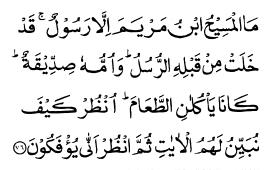 مَا الْمَسِيْحُ ابْنُ مَرْيَمَ اِلَّا رَسُوْلٌ ۚ قَدْ
خَلَتْ مِنْ قَبْلِهِ الرُّسُلُ ؕ وَاُمُّهٗ صِدِّيْقَةٌ ؕ
كَانَا يَاْكُلٰنِ الطَّعَامَ ؕ اُنْظُرْ كَيْفَ
نُبَيِّنُ لَهُمُ الْاٰيٰتِ ثُمَّ انْظُرْ اَنّٰى يُؤْفَكُوْنَ ﴿۷۶﴾